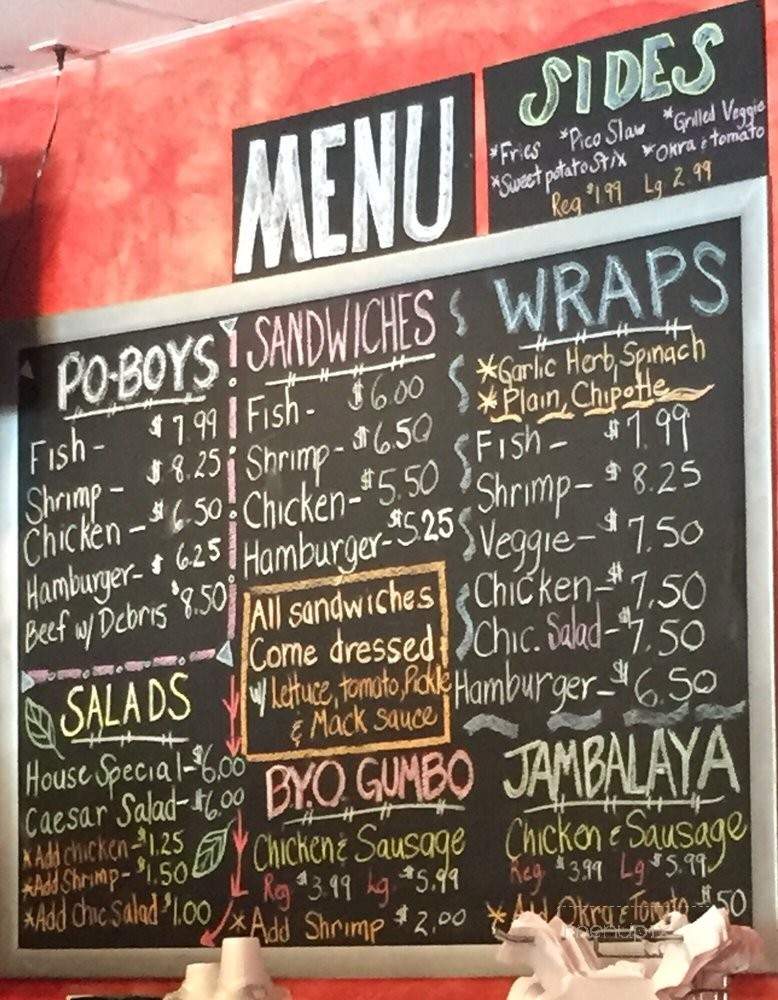 MENU
SIDES
*Fries *Pico Slaw *Grilled Veggie
*Sweet potato Stix *Okra & tomato
Reg $1.99 Lg 2.99
PO-BOYS
Fish - $7.99
Shrimp - $8.25
Chicken - $6.50
Hamburger - $6.25
Beef w/ Debris $8.50
SALADS
House Special - $6.00
Caesar Salad - $6.00
*Add chicken - $1.25
*Add Shrimp - $1.50
*Add Chic Salad $1.00
SANDWICHES
Fish - $6.00
Shrimp - $6.50
Chicken - $5.50
Hamburger - $5.25
All sandwiches
Come dressed
w/ Lettuce, tomato, Pickle
& Mack sauce
B.Y.O. GUMBO
Chicken & Sausage
Reg $3.99 Lg $5.99
*Add Shrimp $2.00
WRAPS
*Garlic Herb, Spinach
*Plain, Chipotle
Fish - $7.99
Shrimp - $8.25
Veggie - $7.50
Chicken - $7.50
Chic. Salad - $7.50
Hamburger - $6.50
JAMBALAYA
Chicken & Sausage
Reg $3.99 Lg $5.99
*Add Okra & Tomato $.50